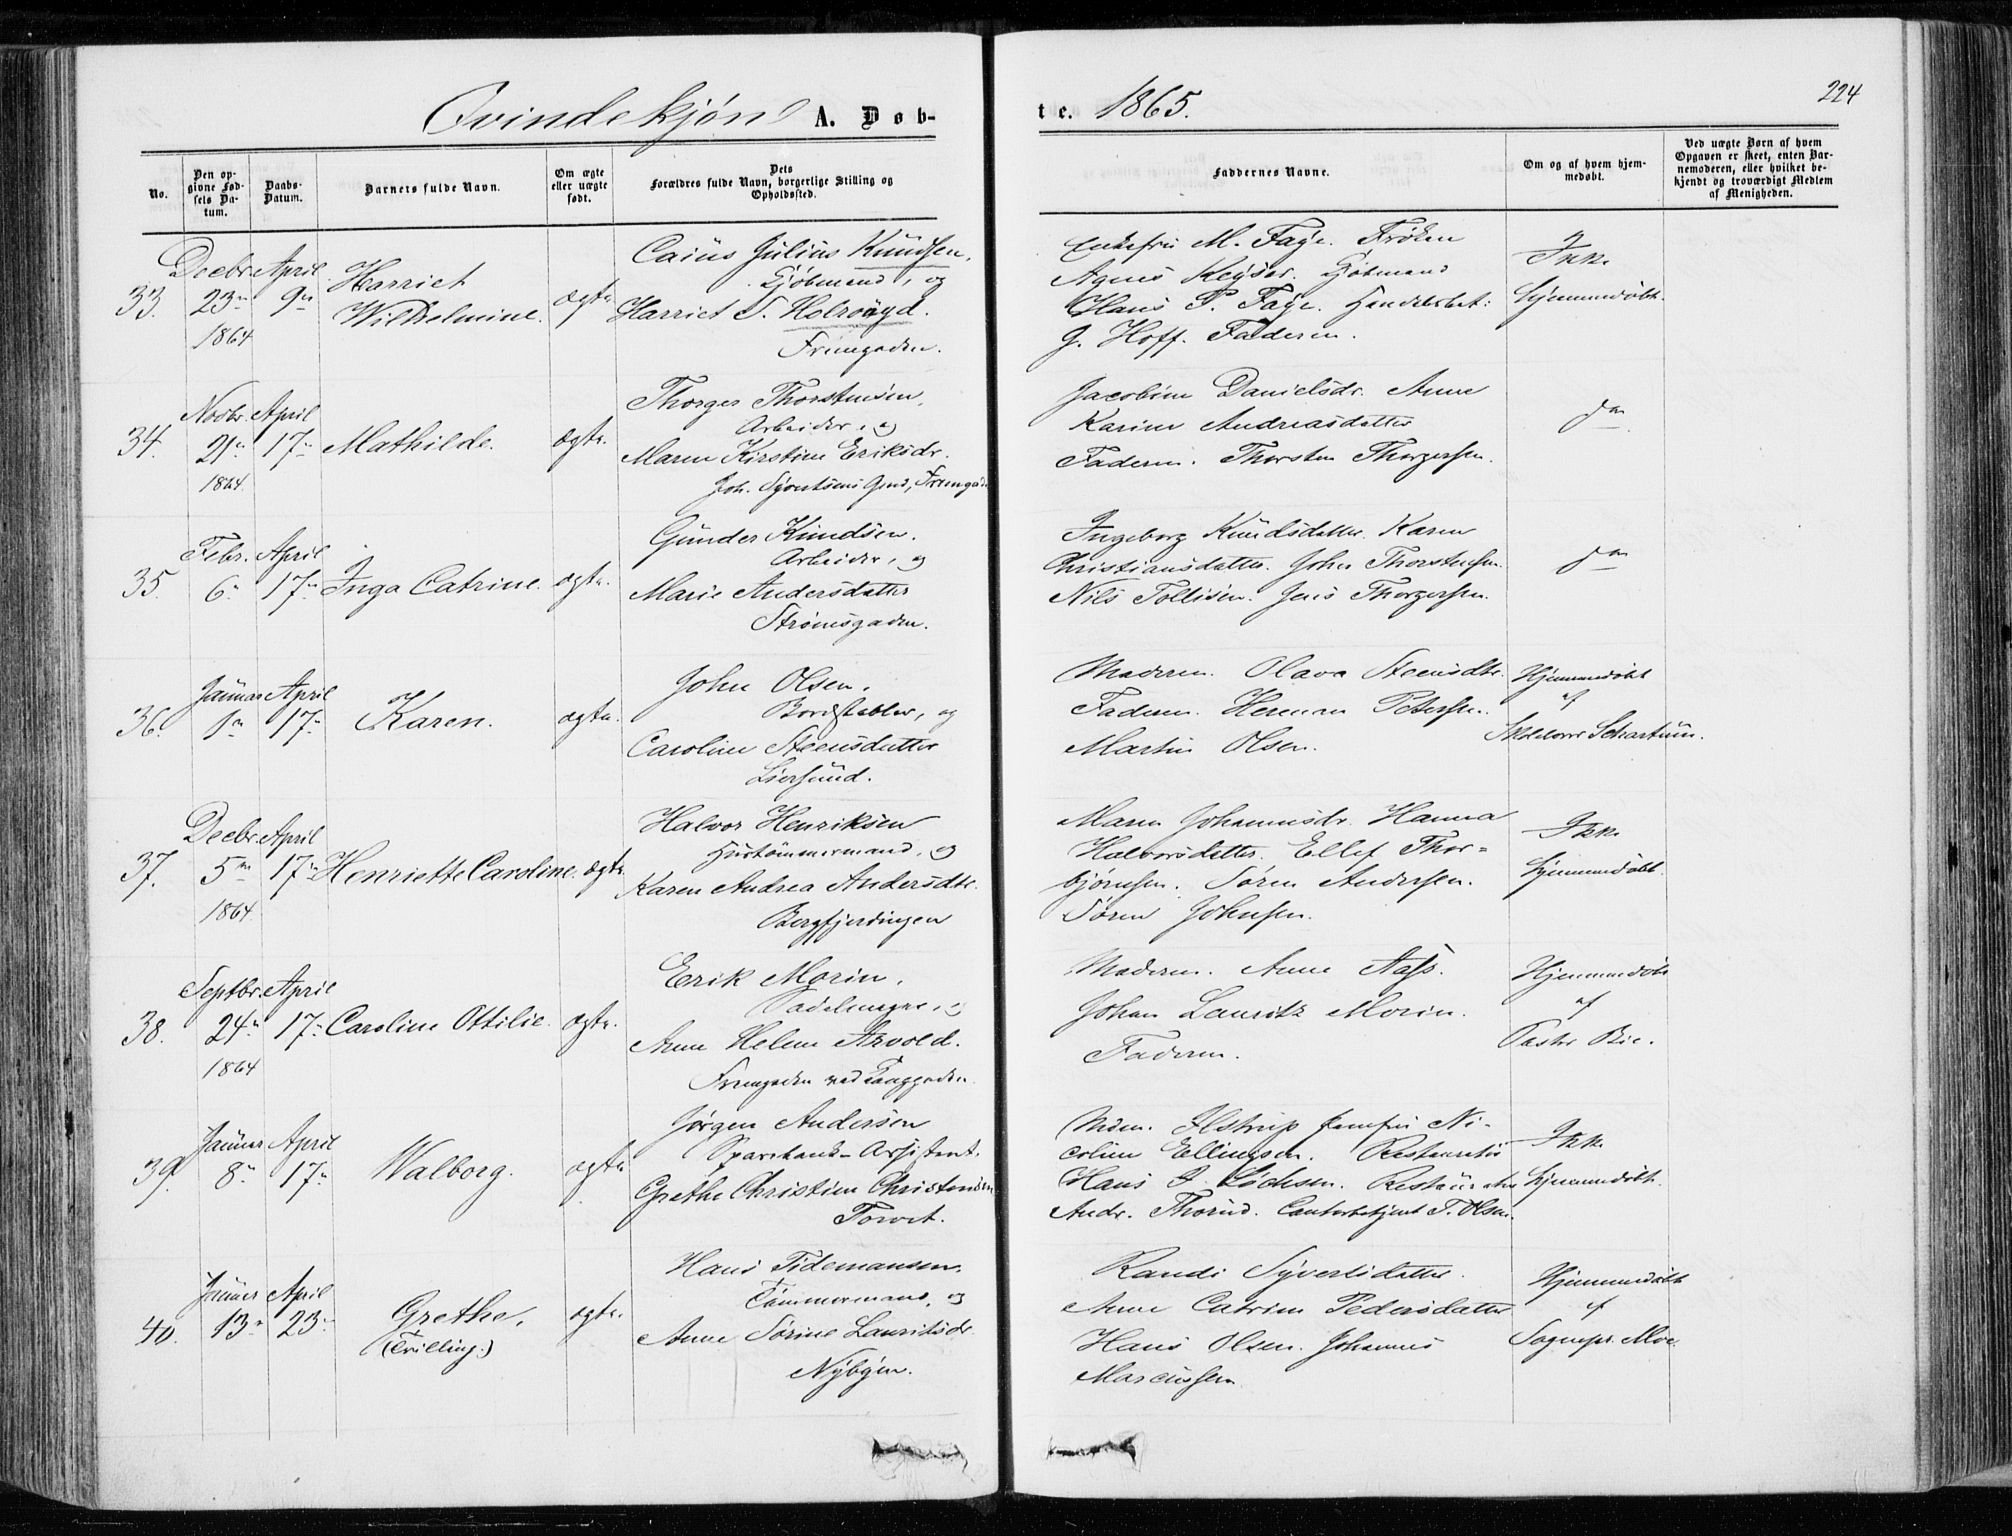 Qvindekjøn A. Døb-
te. 1865.
224
No.
Den op-
givne Fød-
sels Da-
tum.
Daabs-
Datum.
Barnets fulde Navn.
Om ægte
eller uægte
født.
Dets
Forældres fulde Navn, borgerlige Stilling og
Opholdssted.
Faddernes Navne.
Om og af hvem hjem-
medøbt.
Ved uægte Børn af hvem
Opgaven er skeet, enten Bar-
nemoderen, eller hvilket be-
kjendt og troværdigt Medlem
af Menigheden.
33.
Decbr.
23de
1864
April
9de
Harriet
Wilhelmine.
ægte
Caius Julius Knudsen,
Kjøbmand, og
Harriet S. Holroyd.
Fruegaden.
Enkefru M. Faye. Frøken
Agnes Keyser. Kjøbmand
Hans P. Faye. Handelsbet:
G. Hoff. Faderen.
Ikke
hjemmedøbt.
34.
Novbr.
21de
1864.
April
17de
Mathilde.
ægte.
Thorger Thorstensen,
Arbeider, og
Maren Kirstine Eriksdr.
Joh. Syvertsens Gaard, Fruegade
Jacobine Danielsdr. Anne
Karine Andreasdatter
Faderen. Thorsten Thorgersen.
do
35.
Febr.
6te
April
17de
Inga Catrine.
ægte.
Gunder Knudsen.
Arbeider, og
Marie Andersdatter
Strømsgaden.
Ingeborg Knudsdatter. Karen
Christiansdatter. John Thorstensen.
Nils Tollisen. Jens Thorgersen.
do
36.
Januar
1ste
April
17de
Karen.
ægte.
John Olsen,
Bordstabler, og
Caroline Steensdatter
Liersund.
Moderen. Olava Steensdtr.
Faderen. Herman Petersen.
Martin Olsen.
Hjemmedøbt
af
Skolelærer Schartum.
37.
Decbr.
5te
1864
April
17de
Henriette Caroline.
ægte.
Halvor Henriksen
Hustømmermand, og
Karen Andrea Andersdtr.
Bergfjerdingen
Maren Johannesdr. Hanna
Halvorsdatter. Ellef Thor-
bjørnsen. Søren Andersen.
Søren Johnsen.
Ikke
hjemmedøbt.
38.
Septbr.
24de
1864
April
17de
Caroline Ottilie.
ægte.
Erik Morin,
Sadelmager, og
Anne Helene Arvold.
Fruegaden ved Toppgaden.
Moderen. Anne Aass.
Johan Lauritz Morin.
Faderen.
Hjemmedøbt
af
Pastor Bie.
39.
Januar
8de
April
17de
Walborg.
ægte
Jørgen Andersen
Sparebank-Assistent.
Grethe Christine Christensen
Torvet.
Mdm. Ilstrup Jomfru Ni-
coline Ellingsen. Restauratør
Hans J. Løchsen. Restauratør
Andr. Thorud. Contorbetjent T. Olsen.
Ikke
hjemmedøbt.
40.
Januar
13de
April
23de
Grethe,
(Tvilling.)
ægte.
Hans Tidemansen.
Tømmermand, og
Anne Sørine Lauritsdr.
Nybyen.
Randi Syvertsdatter.
Anne Catrine Pedersdatter
Hans Olsen. Johannes
Marcussen.
Hjemmedøbt
af
Sognepr. Moe.